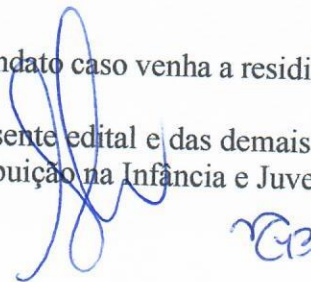 ndato caso venha a residi
sente edital e das demais
buição na Infância e Juve